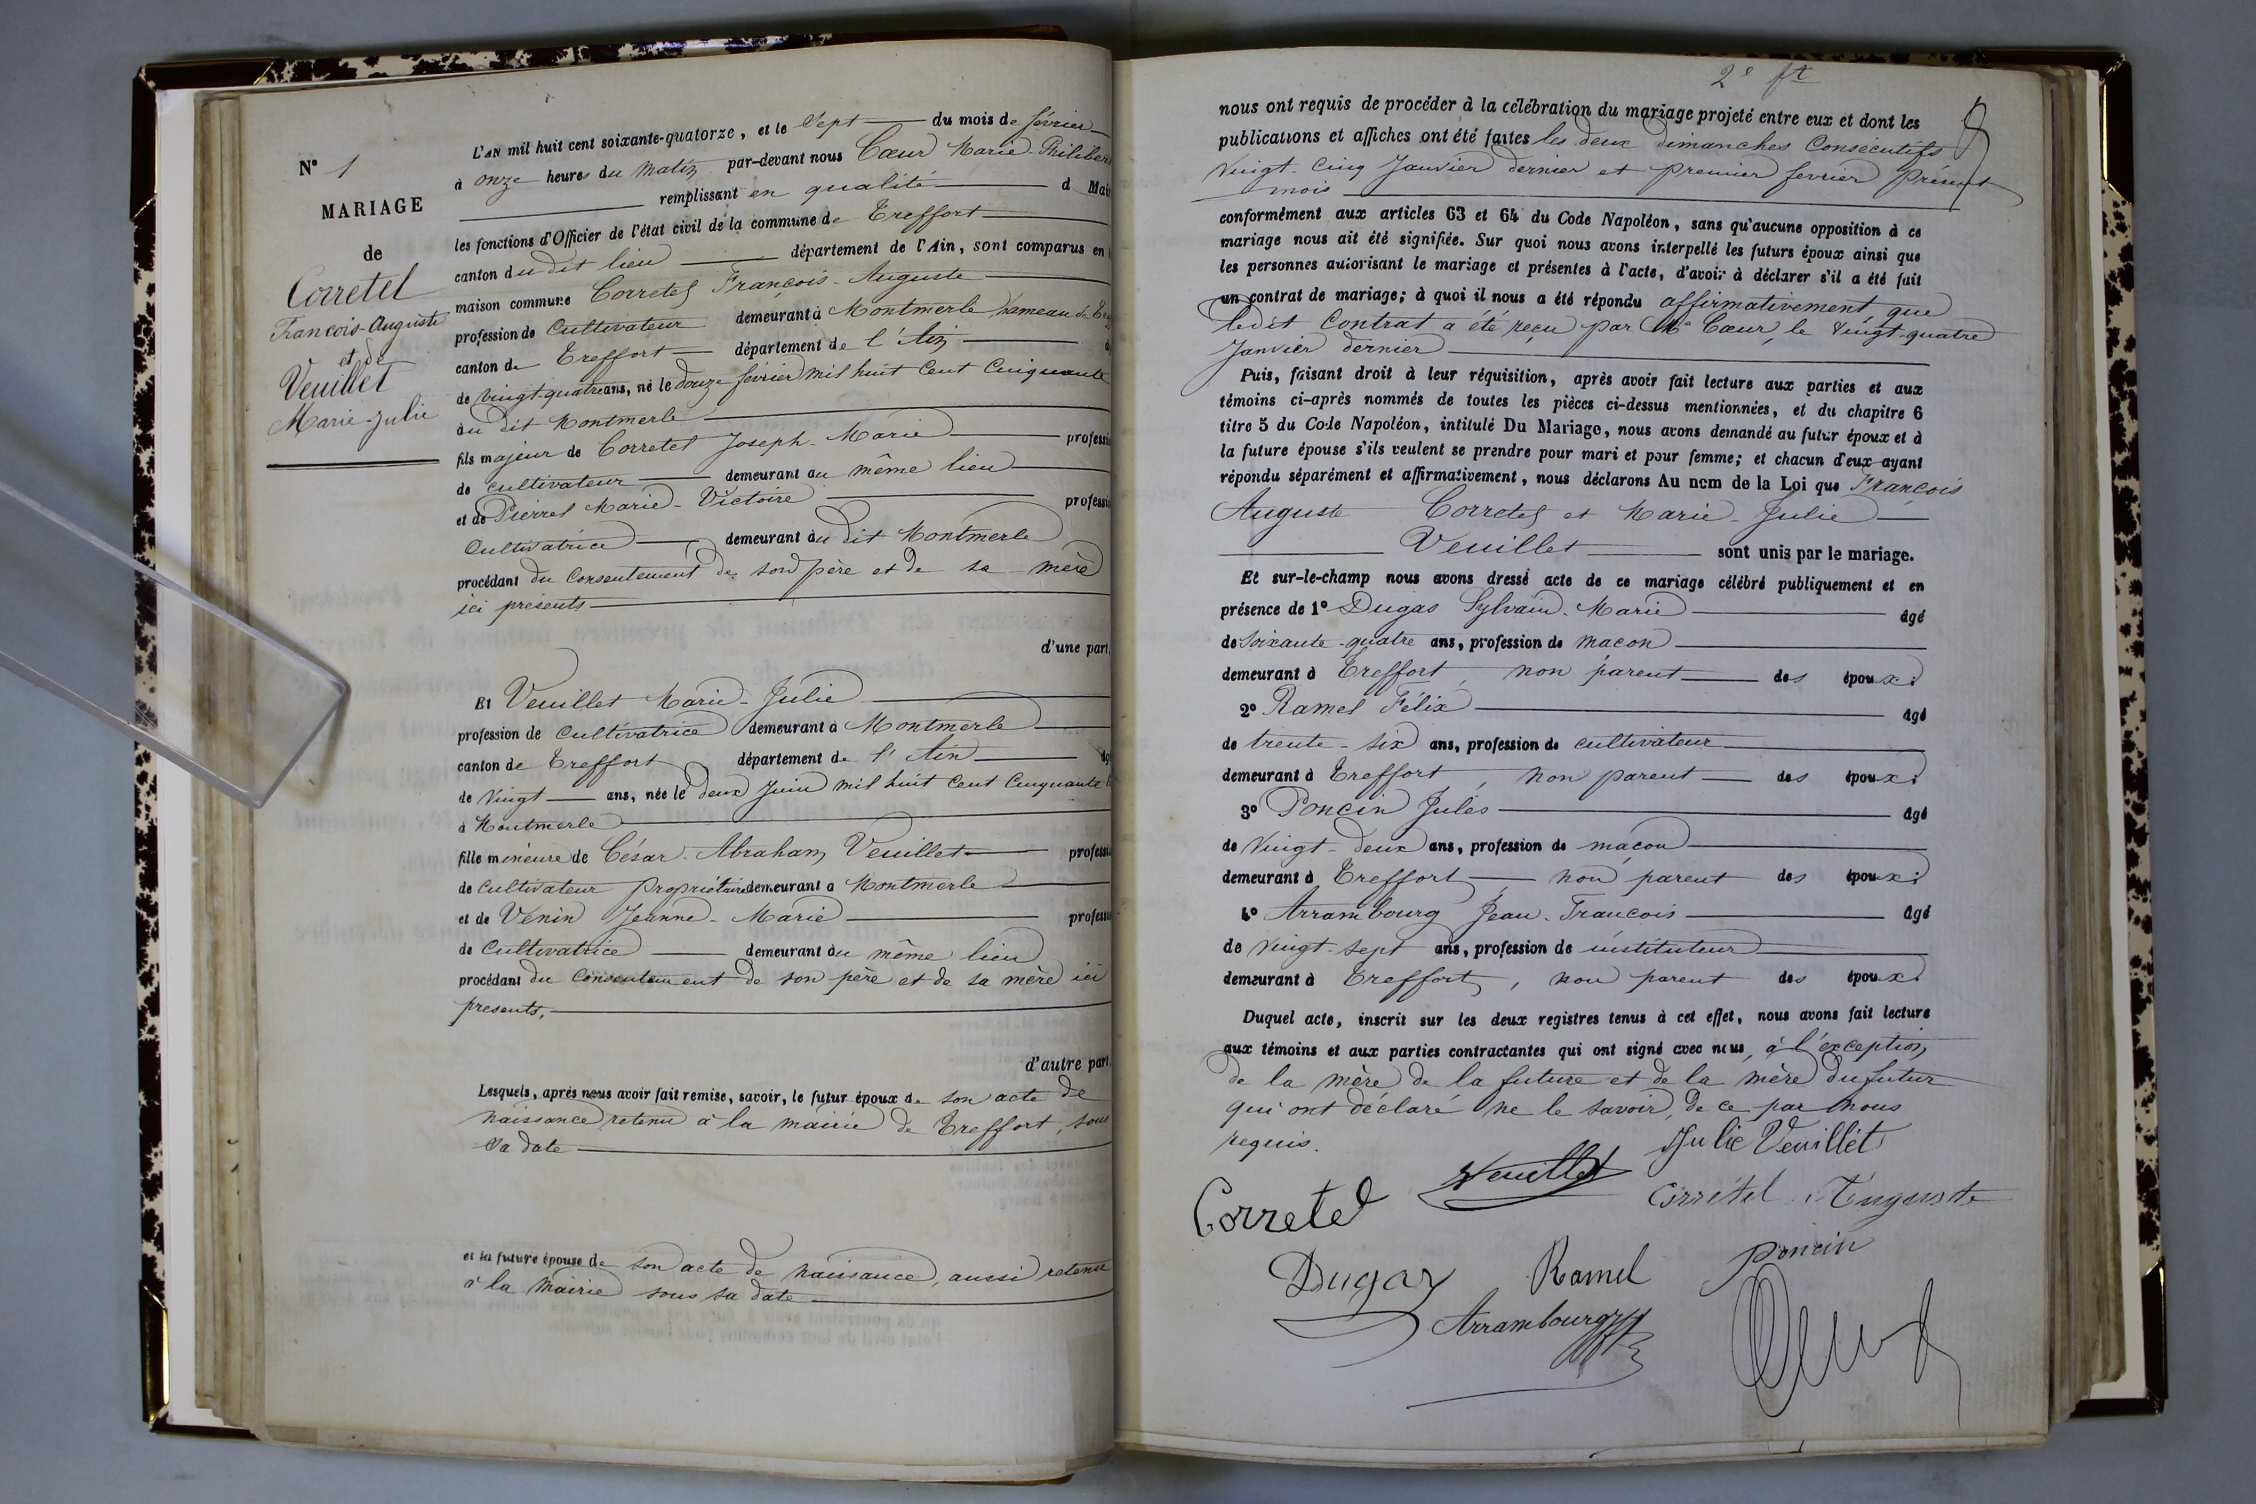 N° 1
MARIAGE
de
Corretel
François-Auguste
et de
Veuillet
Marie-Julie
L'AN mil huit cent soixante-quatorze, et le Sept du mois de février
à onze heures du matin par-devant nous Cœur Marie-Philibert
remplissant en qualité d Maire
les fonctions d'Officier de l'état civil de la commune de Treffort
canton du dit lieu département de l'Ain, sont comparus en
maison commune Corretel François-Auguste
profession de Cultivateur demeurant à Montmerle hameau de
canton de Treffort département de l'Ain
de vingt-quatre ans, né le douze février mil huit cent cinquante
au dit Montmerle
fils majeur de Corretel Joseph-Marie professi
de cultivateur demeurant au même lieu
et de Pierrel Marie-Victoire professi
Cultivatrice demeurant au dit Montmerle
procédant du consentement de son père et de sa mère
ici présents
d'une part,
Et Veuillet Marie-Julie
profession de Cultivatrice demeurant à Montmerle
canton de Treffort département de l'Ain âg
de vingt ans, née le deux Juin mil huit cent cinquante
à Montmerle
fille mineure de César-Abraham Veuillet professi
de Cultivateur propriétaire demeurant à Montmerle
et de Venin Jeanne-Marie professi
de Cultivatrice demeurant au même lieu
procédant du consentement de son père et de sa mère ici
présents,
d'autre part.
Lesquels, après nous avoir fait remise, savoir, le futur époux de son acte de
naissance retenu à la mairie de Treffort, sous
sa date
et la future épouse de son acte de naissance, aussi retenu
à la Mairie sous sa date
2e ft
nous ont requis de procéder à la célébration du mariage projeté entre eux et dont les
publications et affiches ont été faites les deux dimanches Consécutifs
vingt-cinq Janvier dernier et premier février présent
mois
conformément aux articles 63 et 64 du Code Napoléon, sans qu'aucune opposition à ce
mariage nous ait été signifiée. Sur quoi nous avons interpellé les futurs époux ainsi que
les personnes autorisant le mariage et présentes à l'acte, d'avoir à déclarer s'il a été fait
un contrat de mariage; à quoi il nous a été répondu affirmativement que
ledit Contrat a été reçu par Me Cœur, le vingt-quatre
Janvier dernier
Puis, faisant droit à leur réquisition, après avoir fait lecture aux parties et aux
témoins ci-après nommés de toutes les pièces ci-dessus mentionnées, et du chapitre 6
titre 5 du Code Napoléon, intitulé Du Mariage, nous avons demandé au futur époux et à
la future épouse s'ils veulent se prendre pour mari et pour femme; et chacun d'eux ayant
répondu séparément et affirmativement, nous déclarons Au nom de la Loi que François
Auguste Corretel et Marie-Julie
Veuillet sont unis par le mariage.
Et sur-le-champ nous avons dressé acte de ce mariage célébré publiquement et en
présence de 1° Dugas Sylvain-Marie âgé
de soixante-quatre ans, profession de maçon
demeurant à Treffort, non parent des époux;
2° Ramel Félix âgé
de trente-six ans, profession de cultivateur
demeurant à Treffort, non parent des époux;
3° Poncin Jules âgé
de vingt-deux ans, profession de maçon
demeurant à Treffort non parent des époux;
4° Arrambourg Jean-François âgé
de vingt-sept ans, profession de instituteur
demeurant à Treffort, non parent des époux.
Duquel acte, inscrit sur les deux registres tenus à cet effet, nous avons fait lecture
aux témoins et aux parties contractantes qui ont signé avec nous, à l'exception
de la mère de la future et de la mère du futur
qui ont déclaré ne le savoir, de ce par nous
requis.
Julie Veuillet
Veuillet
Corretel
Corrétel Auguste
Dugas
Ramel
Poncin
Arrambourg
Cœur